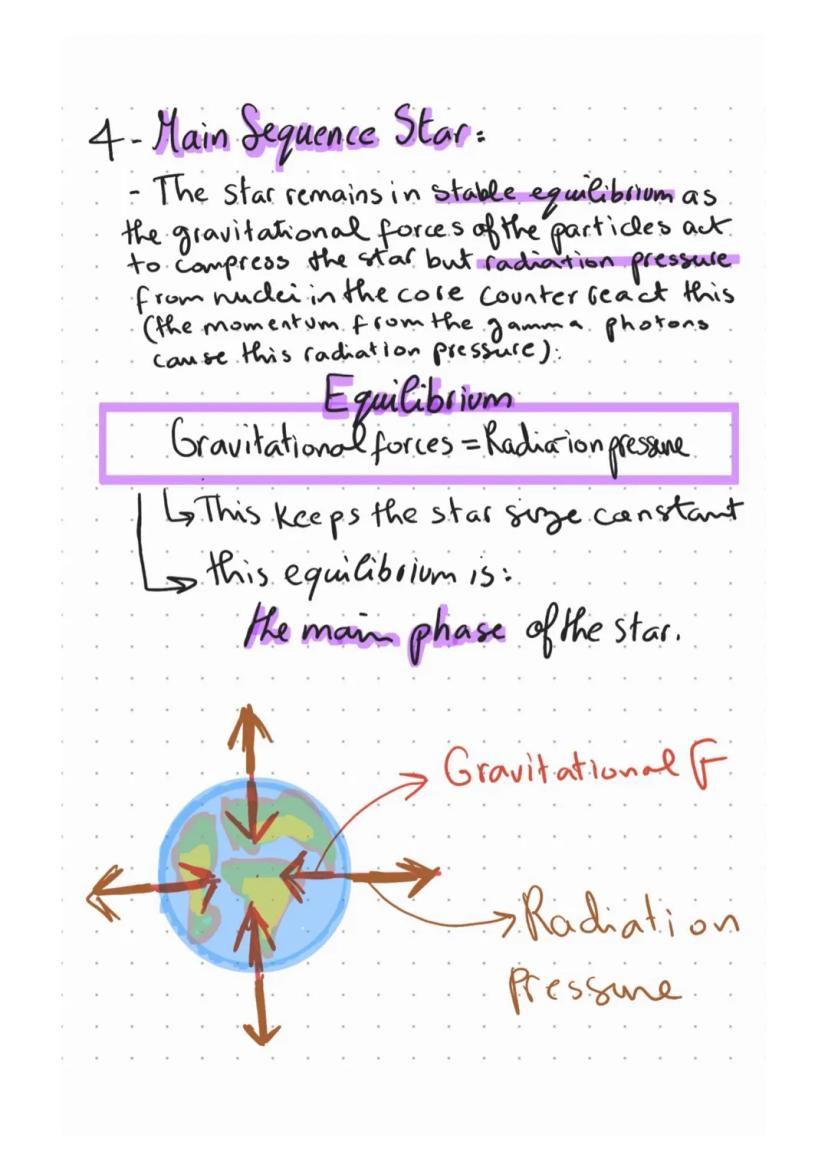 4- Main Sequence Star:
- The star remains in stable equilibrium as
the gravitational forces of the particles act
to compress the star but radiation pressure
from nuclei in the core counter react this
(the momentum from the gamma photons
cause this radiation pressure).
Equilibrium
Gravitational forces = Radiation pressure
↳ This keeps the star size constant
↳ this equilibrium is:
the main phase of the star.
Gravitational F
Radiation
Pressure